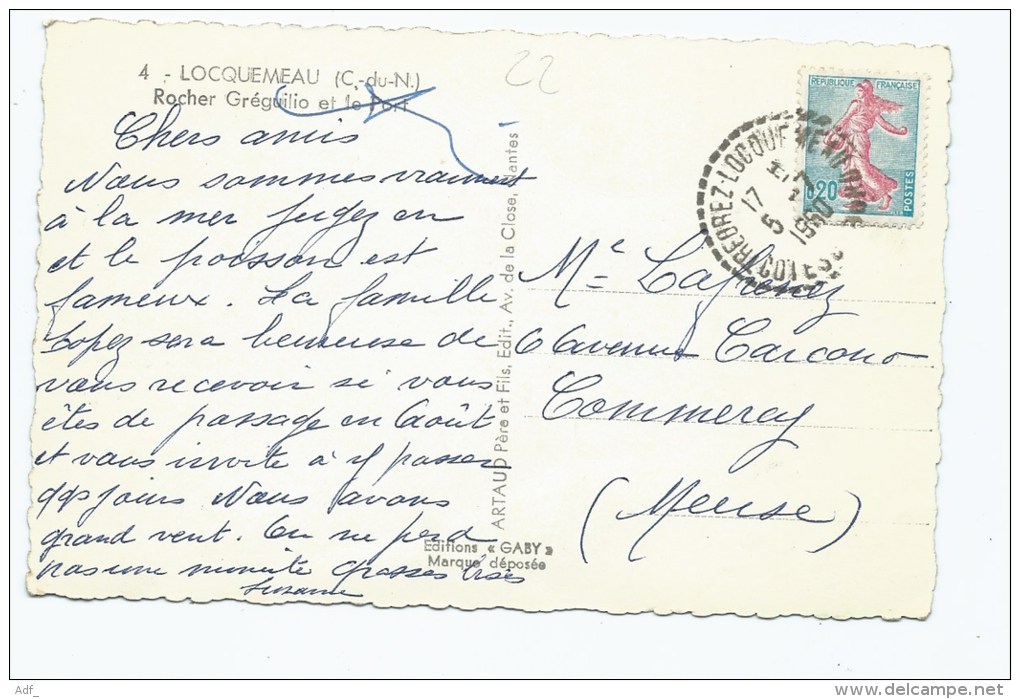 22
4 - LOCQUEMEAU (C.-du-N.)
Rocher Gréguilio et le Port
REPUBLIQUE FRANÇAISE
0,20
POSTES
17
5
1960
Chers amis
Nous sommes vraiment
à la mer jugez en
et le poisson est
fameux. La famille
Lopez sera heureuse de
vous recevoir si vous
êtes de passage en Août
et vous invite à y passer
qqs jours Nous avons
grand vent. On ne perd
pas une minute grosses bises
Suzanne
Me
6 avenue Carcano
Commercy
(Meuse)
ARTAUD Père et Fils, Edit., Av. de la Close, Nantes
Editions « GABY »
Marque déposée
Adf_
www.delcampe.net